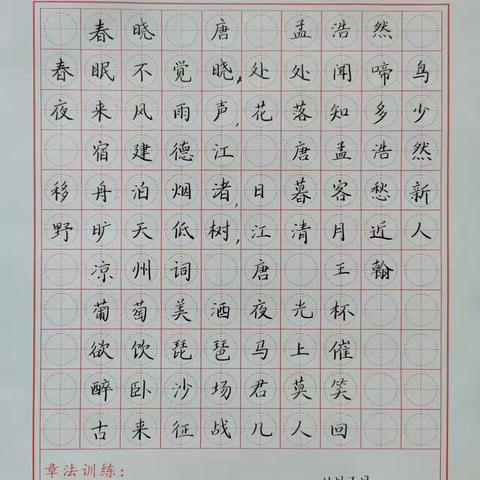 春晓 唐 孟浩然
春眠不觉晓,处处闻啼鸟
夜来风雨声,花落知多少
宿建德江 唐孟浩然
移舟泊烟渚,日暮客愁新
野旷天低树,江清月近人
凉州词 唐 王翰
葡萄美酒夜光杯
欲饮琵琶马上催
醉卧沙场君莫笑
古来征战几人回
章法训练: